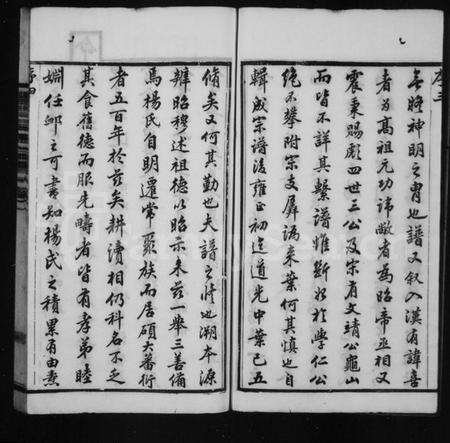 序三
无暇神明之胄也譜又叙入漢有諱喜
者為高祖元功諱敞者為昭帝丞相又
震秉賜彪四世三公及宋有文靖公龜山
而皆不詳其繫譜惟斷始於學仁公
絕不攀附宗支屏譌来葉何其慎也自
輯成宗譜後雍正初迄道光中葉已五
脩矣又何其勤也夫譜之脩也溯本源
辨昭穆述祖德以昭示来茲一舉三善備
焉楊氏自明遷常聚族而居碩大蕃衍
者五百年於茲矣耕讀相仍科名不乏
其食舊德而服先疇者皆有孝弟睦
婣任卹之可書知楊氏之積累有由熹
序四